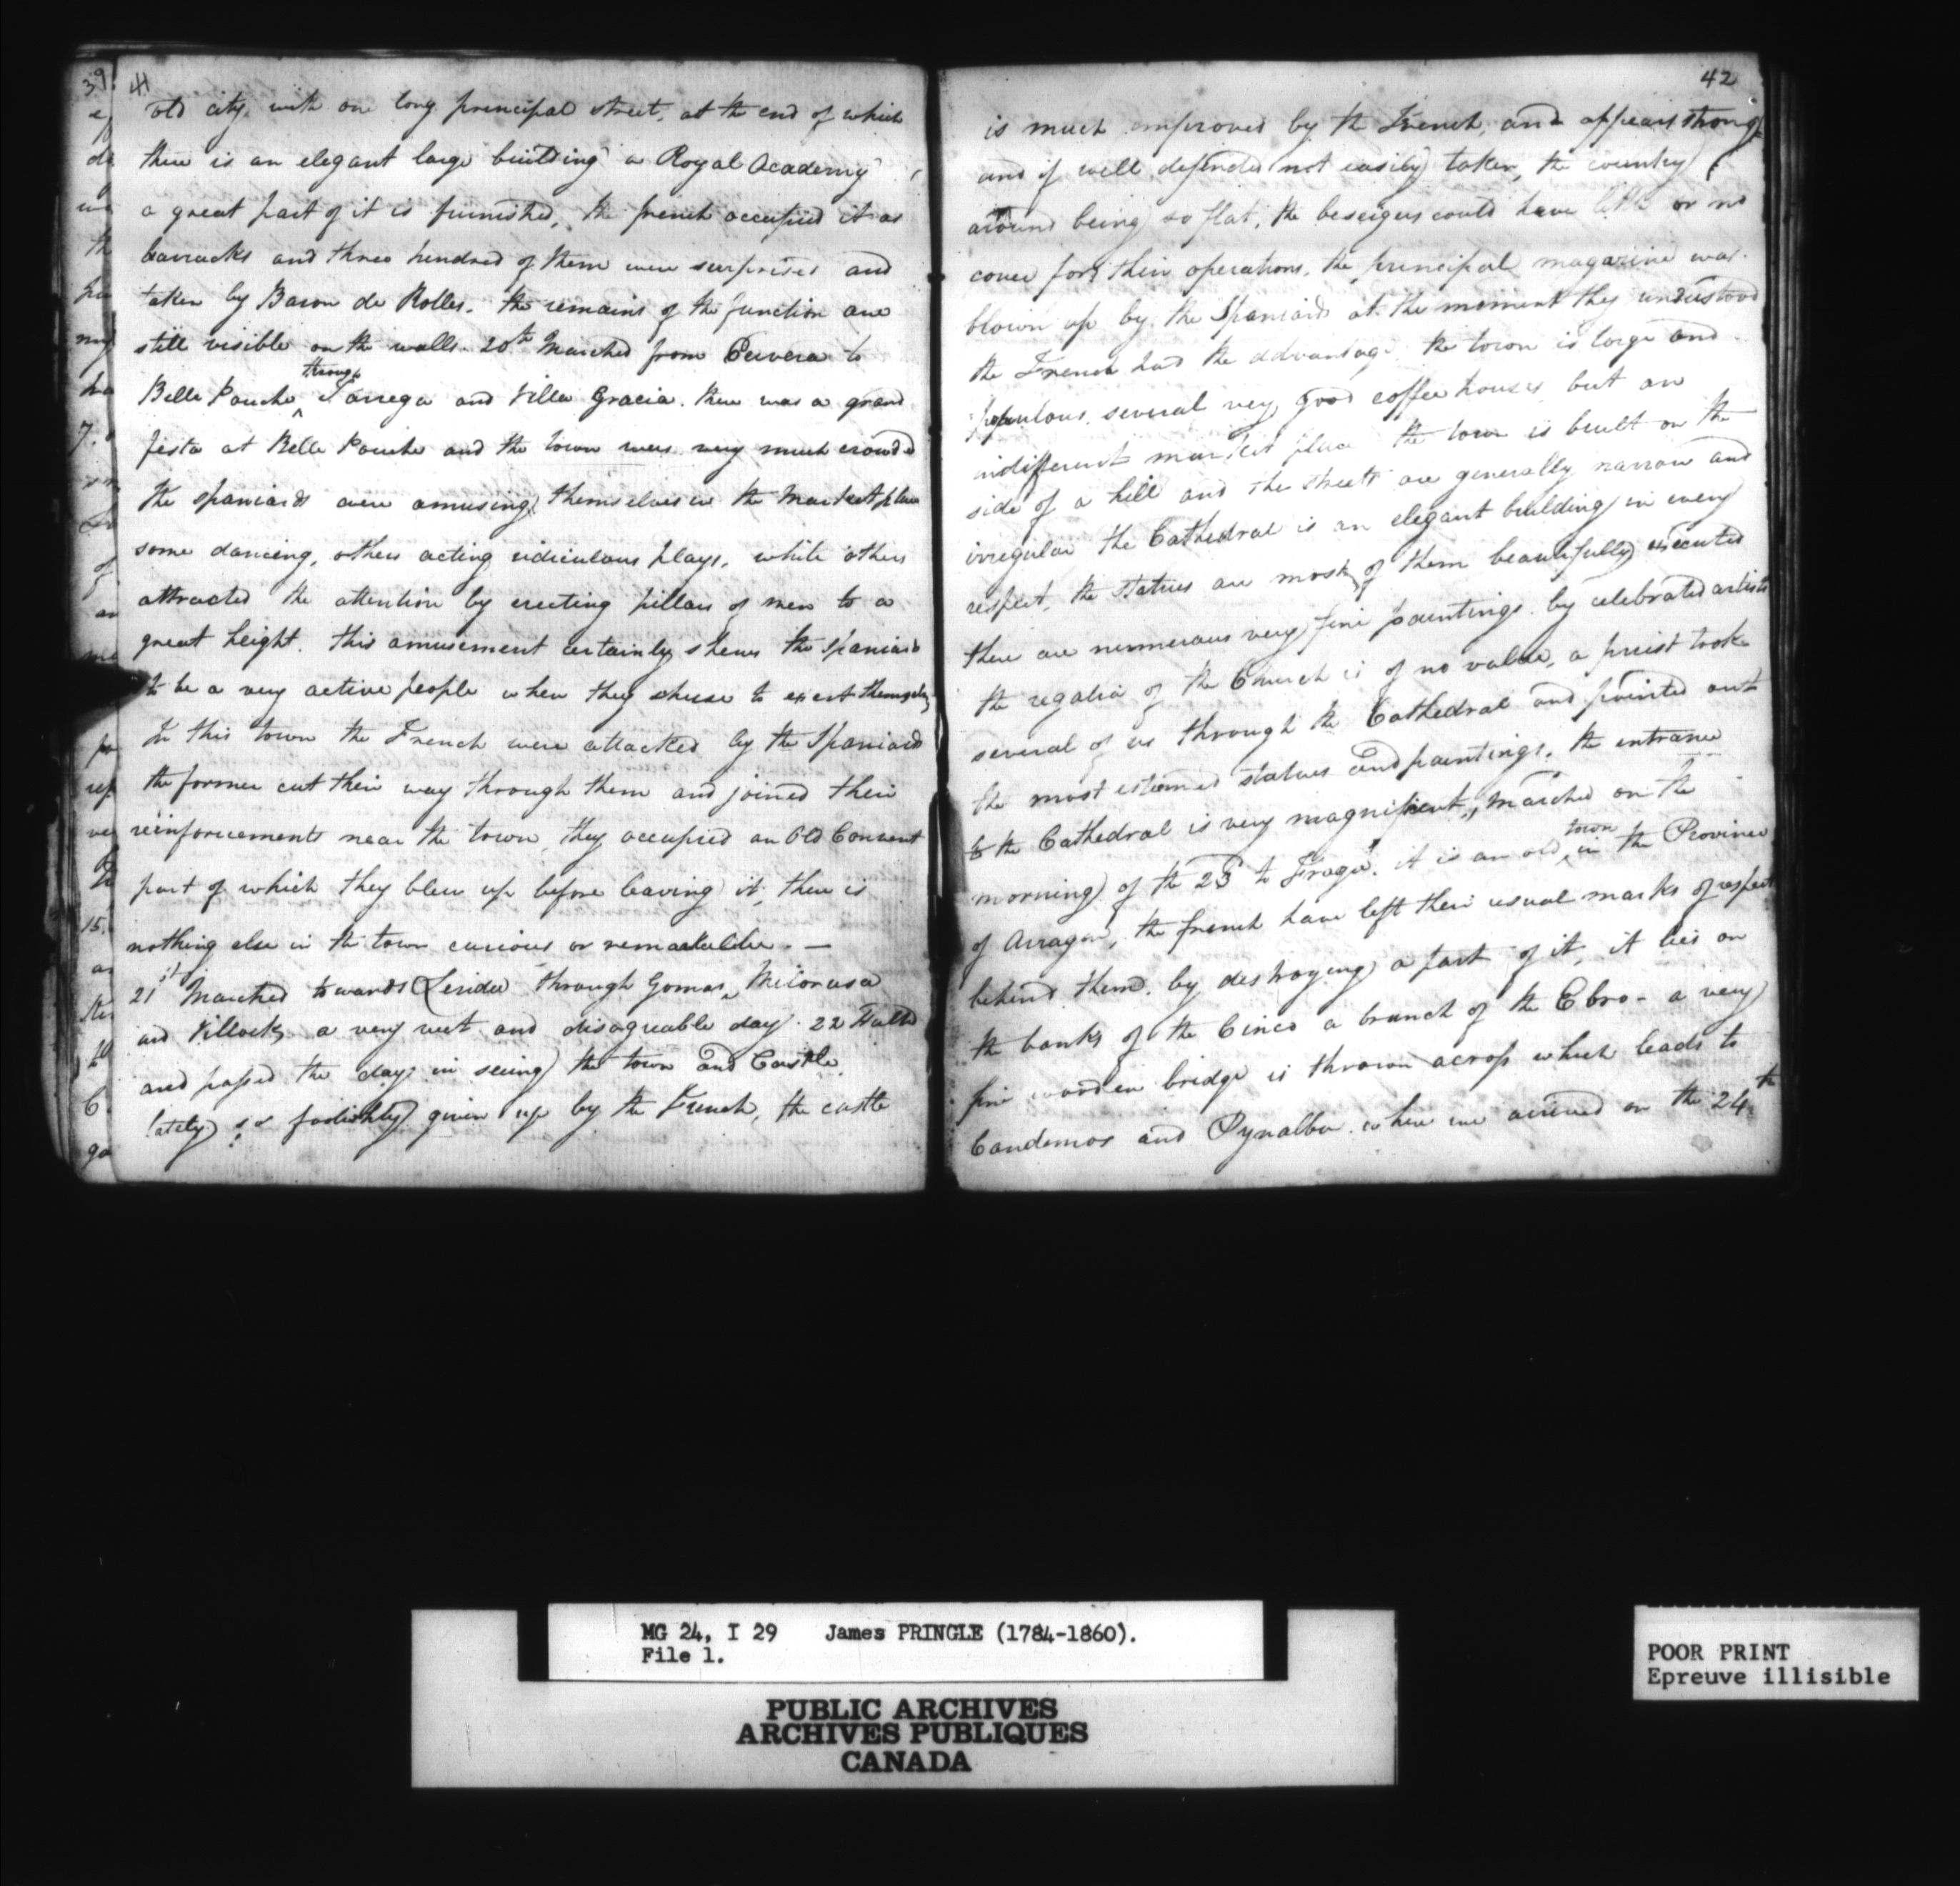 41
old city with one long principal street, at the end of which
there is an elegant large building a Royal Academy
a great part of it is furnished, the french occupied it as
barracks and three hundred of them were surprised and
taken by Baron de Rolles. the remains of the function are
still visible on the walls. 20th Marched from Cervera to
through
Belle Pouche Tarrega and Villa Gracia. there was a grand
festa at Belle Pouche and the town was very much crowded
the spaniards were amusing themselves in the Market place
some dancing, others acting ridiculous plays, while others
attracted the attention by erecting pillars of men to a
great height. this amusement certainly shews the Spaniards
to be a very active people when they chuse to exert themselves
In this town the French were attacked by the Spaniards
the former cut their way through them and joined their
reinforcements near the town, they occupied an Old Convent
part of which they blew up before leaving it, there is
nothing else in the town curious or remarkable. —
21st Marched towards Lerida through Gomas, Milorusa
and Villock, a very wet and disagreable day. 22 Halted
and passed the day in seeing the town and Castle
lately so foolishly given up by the French, the castle
42
is much improved by the French, and appears strong
and if well defended not easily taken, the country
around being so flat, the beseigers could have little or no
cover for their operations. the principal magazine was
blown up by the Spaniards at the moment they understood
the French had the advantage. the town is large and
populous. several very good coffee houses, but an
indifferent market place the town is built on the
side of a hill and the streets are generally narrow and
irregular the Cathedral is an elegant building in every
respect, the statues are most of them beautifully executed
there are numerous very fine paintings by celebrated artists
the regalia of the Church is of no value, a priest took
several of us through the Cathedral and pointed out
the most esteemed statues and paintings. the entrance
to the Cathedral is very magnificent, Marched on the
morning of the 23 to Fraga. it is an old in the Province
town
of Arragon, the french have left their usual marks of respect
behind them. by destroying a part of it, it lies on
the banks of the Cinca a branch of the Ebro - a very
fine wooden bridge is thrown across which leads to
Candemos and Pynalba where we arrived on the 24th
MG 24, I 29 James PRINGLE (1784-1860).
File 1.
PUBLIC ARCHIVES
ARCHIVES PUBLIQUES
CANADA
POOR PRINT
Epreuve illisible